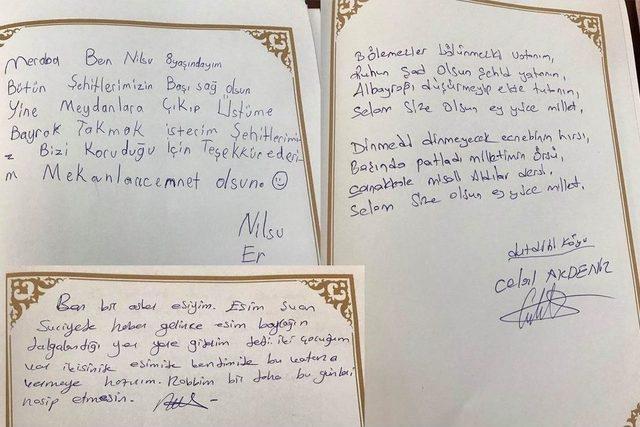 Meraba Ben Nilsu 8yaşındayım
Bütün Şehitlerimizin Başı sağ olsun
Yine Meydanlara Çıkıp Üstüme
Bayrak Takmak isterim Şehitlerimi
z Bizi Koruduğu için Teşekkür ederi
m Mekanlarıcennet olsun.
Nilsu
Er
Ben bir asker eşiyim. Eşim şuan
Suriyede haber gelince eşim bayrağın
dalgalandığı yer yere giderim dedi. iki çocuğum
var ikisinide eşimide kendimide bu vatana
vermeye hazırım. Rabbim bir daha bu günleri
nasip etmesin.
Bölemezler bölünmezki vatanım,
Ruhun Şad Olsun Şehid yatanım,
Albayrağı düşürmeyip elde tutanım,
Selam Size Olsun ey yüce millet.
Dinmedi dinmeyecek ecnebinin hırsı,
Başında patladı milletimin örsü,
Çanakkale misali Aldılar dersi.
Selam Size olsun ey yüce millet.
Köyü
Celal AKDENİZ